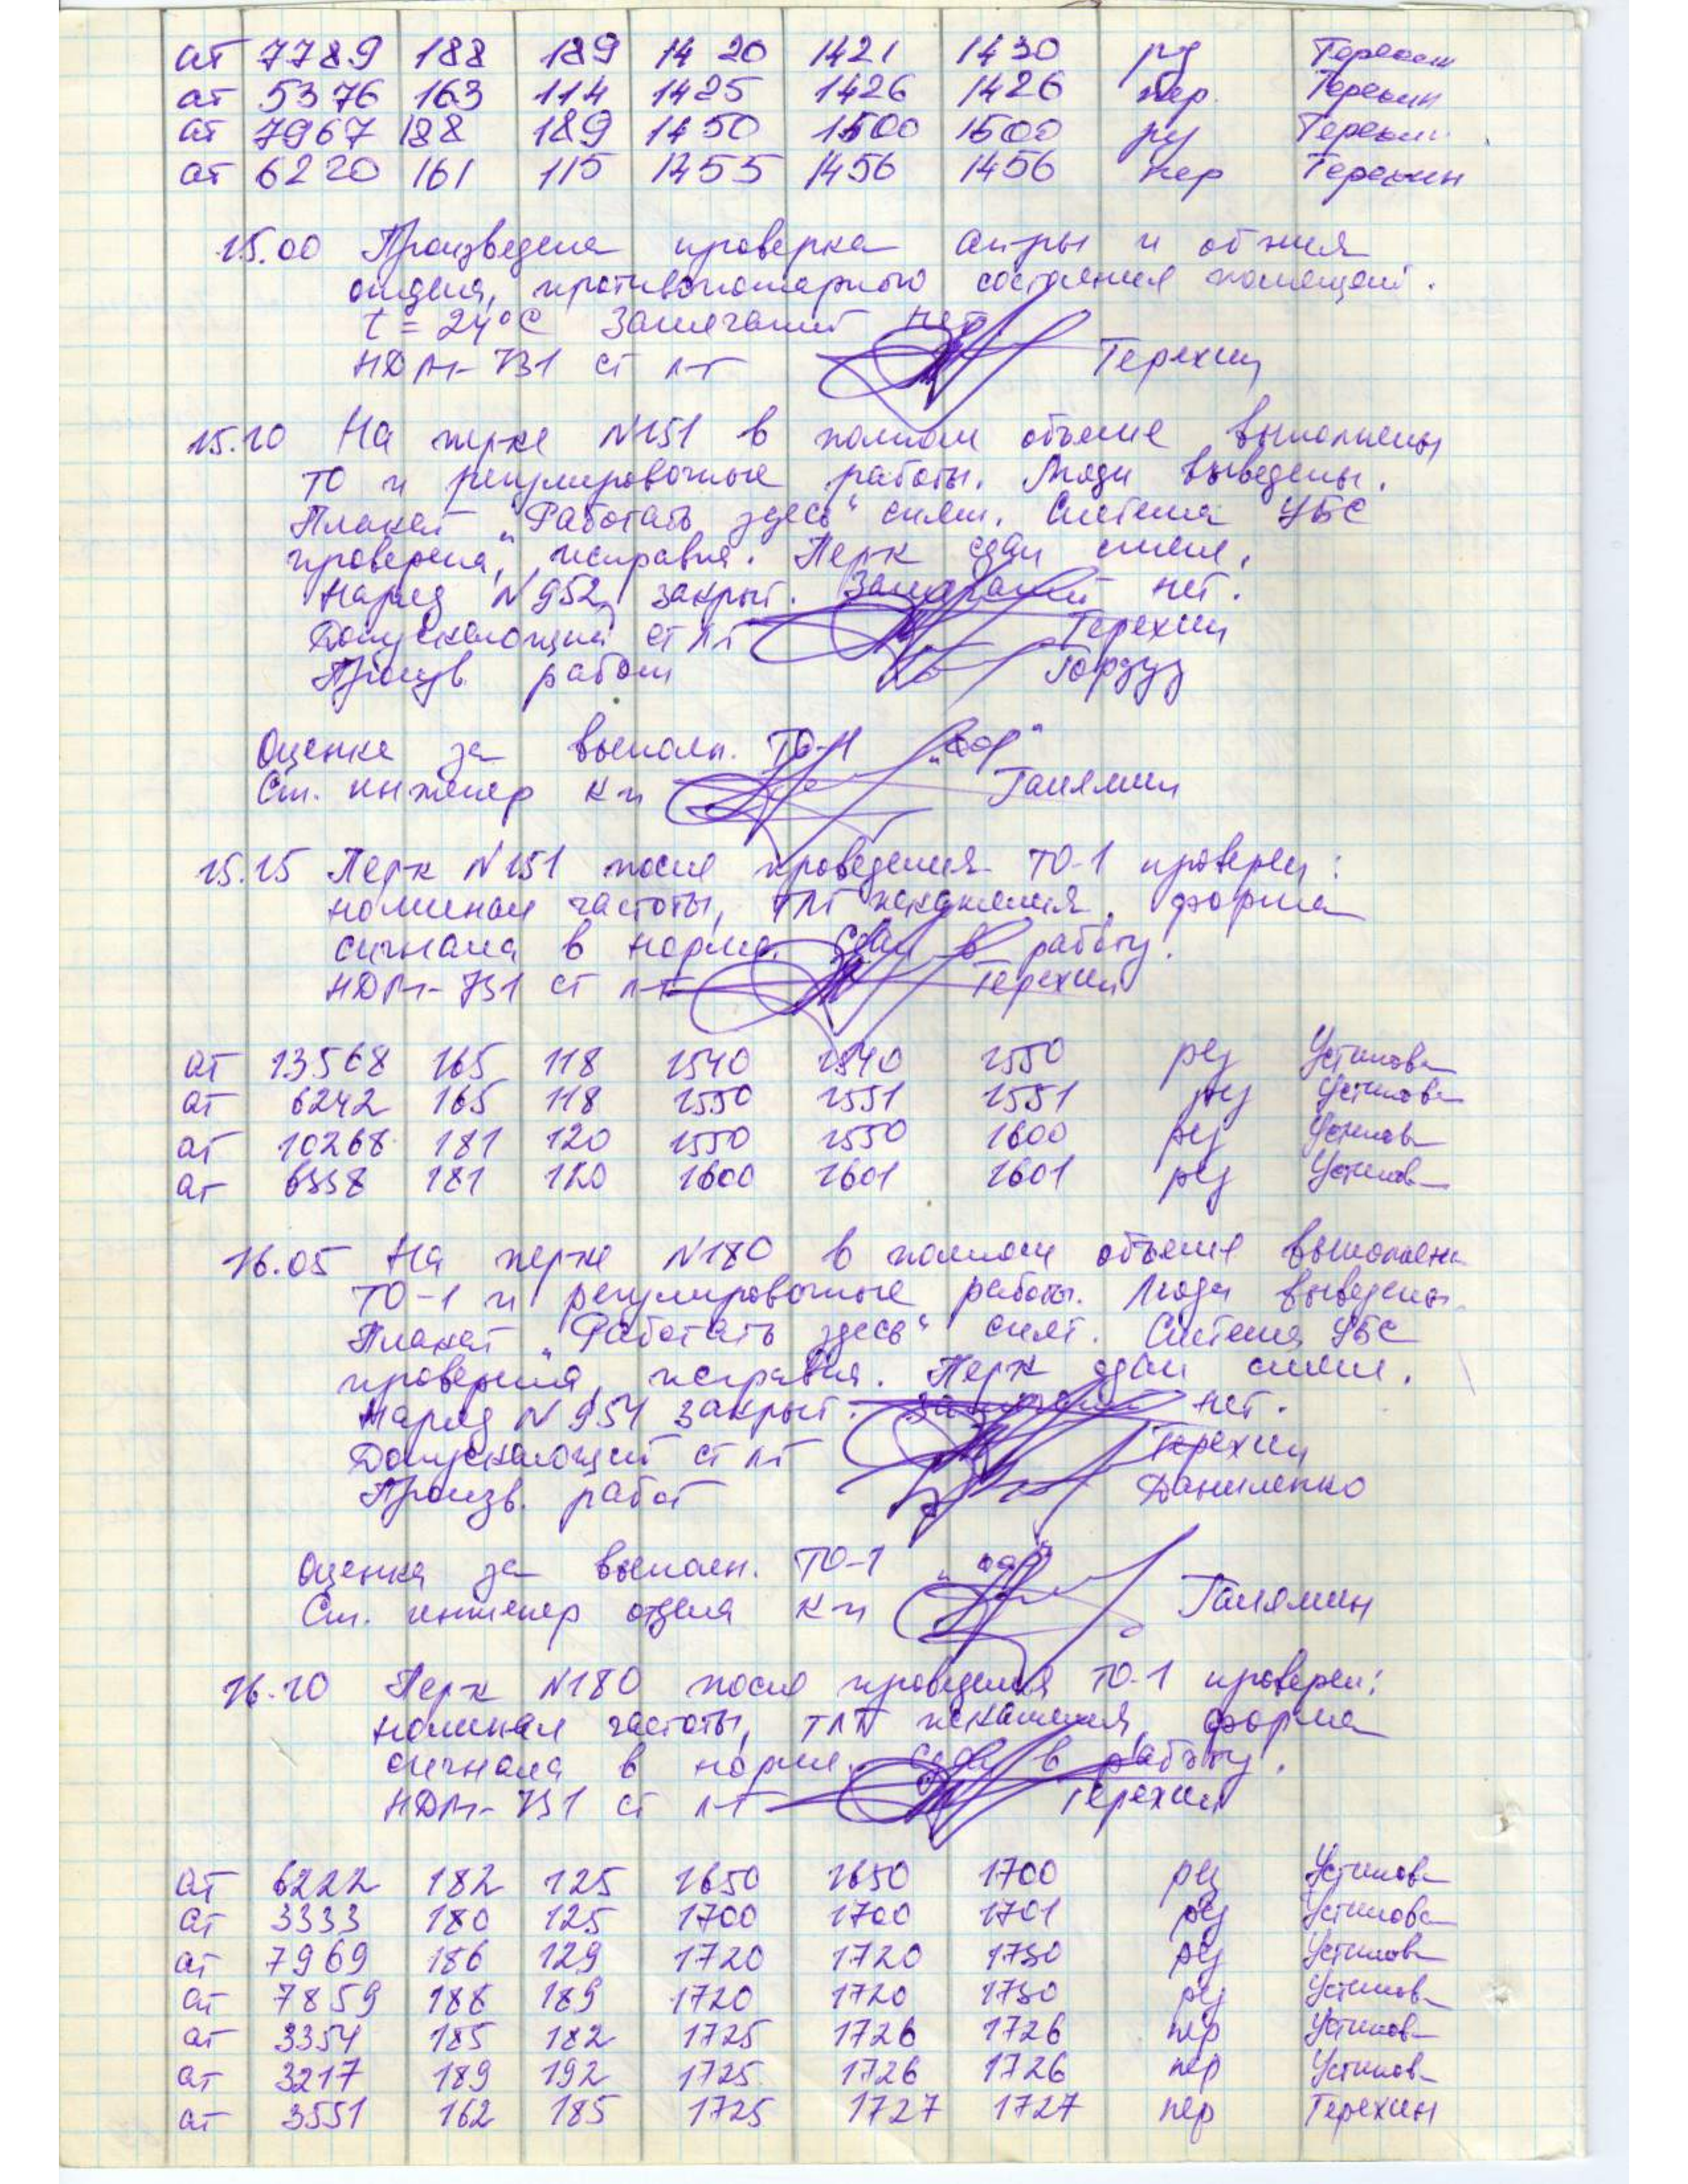 ат 7789 188 189 1420 1421 1430 рез Терехин
ат 5376 163 114 1425 1426 1426 пер. Терехин
ат 7967 188 189 1450 1500 1500 рез Терехин
ат 6220 161 115 1455 1456 1456 пер Терехин
15.00 Произведена проверка ап-ры и
отдела, противопожарного состояния помещений.
t = 24°C Замечаний нет
НДМ-731 ст л-т Терехин
15.10 На перке N151 в полном объеме выполнены
ТО и регулировочные работы. Люди выведены.
Плакат „Работать здесь“ снят. Система УБС
проверена, исправна. Перк сдан смене.
Наряд N952 закрыт. Замечаний нет.
Допускающий ст л-т Терехин
Произв. работ
Оценка за выполн. ТО-1 „хор“
Ст. инженер К-н Галямин
15.15 Перк N151 после проведения ТО-1 проверен:
номинал частоты, ТЛГ искажения, форма
сигнала в норме. Сдан в работу.
НДМ-731 ст л-т Терехин
ат 13568 165 118 1540 1540 1550 рез Устинова
ат 6242 165 118 1550 1551 1551 рез Устинова
ат 10268 181 120 1550 1550 1600 рез Устинова
ат 6558 181 120 1600 1601 1601 рез Устинова
16.05 На перке N180 в полном объеме выполнены
ТО-1 и регулировочные работы. Люди выведены.
Плакат „Работать здесь“ снят. Система УБС
проверена, исправна. Перк сдан смене.
Наряд N954 закрыт. Замечаний нет.
Допускающий ст л-т Терехин
Произв. работ Даниленко
Оценка за выполн. ТО-1 „хор“
Ст. инженер отдела К-н Галямин
16.10 Перк N180 после проведения ТО-1 проверен:
номинал частоты, ТЛГ искажения, форма
сигнала в норме. Сдан в работу.
НДМ-731 ст л-т Терехин
ат 6222 182 125 1650 1650 1700 рез Устинова
ат 3333 180 125 1700 1700 1701 рез Устинова
ат 7969 186 129 1720 1720 1730 рез Устинова
ат 7859 188 189 1720 1720 1730 рез Устинова
ат 3354 185 182 1725 1726 1726 пер Устинова
ат 3217 189 192 1725 1726 1726 пер Устинова
ат 3551 162 185 1725 1727 1727 пер Терехин